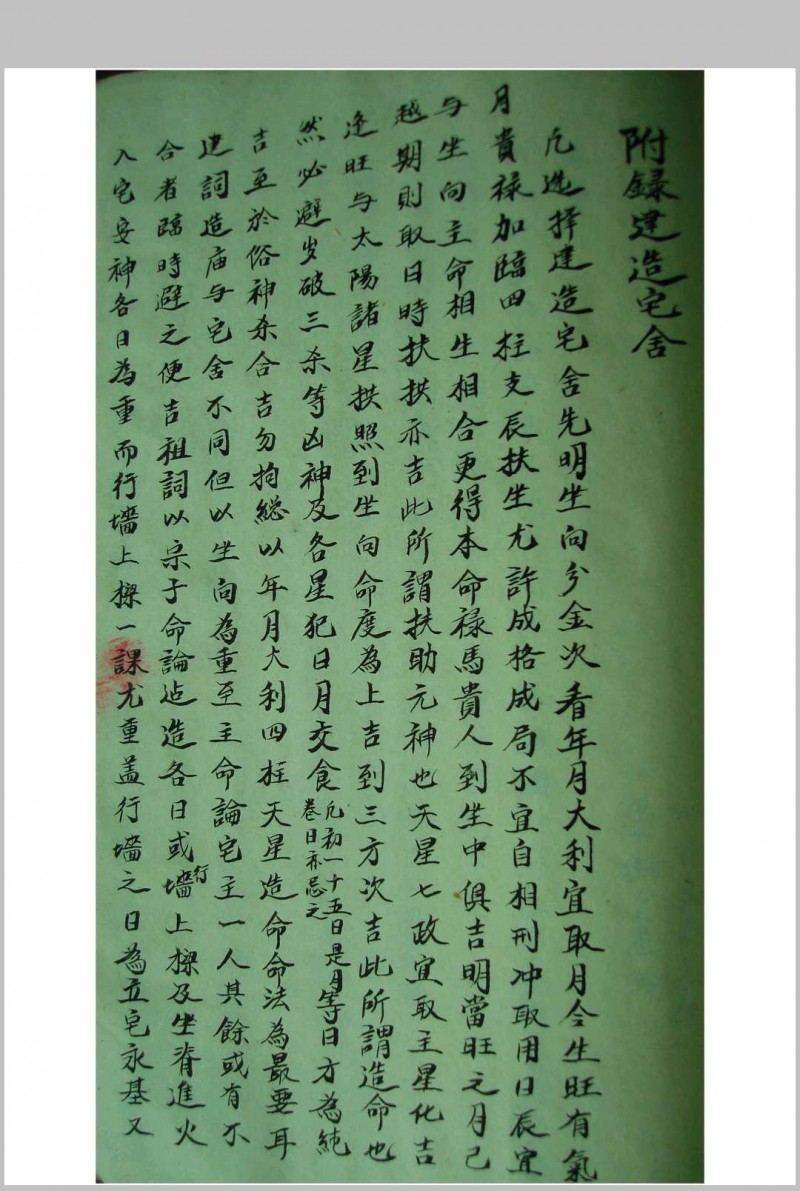 附錄建造宅舍
凡选择建造宅舍先明坐向分金次看年月大利宜取月令生旺有氣
月貴祿加臨四柱支辰扶坐尤許成格成局不宜自相刑冲取用日辰宜
与坐向主命相生相合更得本命祿馬貴人到坐中俱吉明當旺之月已
越期則取日時扶拱亦吉此所謂扶助元神也天星七政宜取主星化吉
逢旺与太陽諸星拱照到坐向命度為上吉到三方次吉此所謂造命也
然必避岁破三杀等凶神及各星犯日月交食凡初一十五日是月等日方為純
卷日亦忌之
吉至於俗神杀合吉勿拘総以年月大利四柱天星造命命法為最要耳
建詞造庙与宅舍不同但以坐向為重至主命論宅主一人其餘或有不
合者臨時避之便吉祖詞以宗子命論迠造各日或行墻上樑及坐脊進火
入宅安神各日為重而行墻上樑一課尤重盖行墻之日為立宅永基又